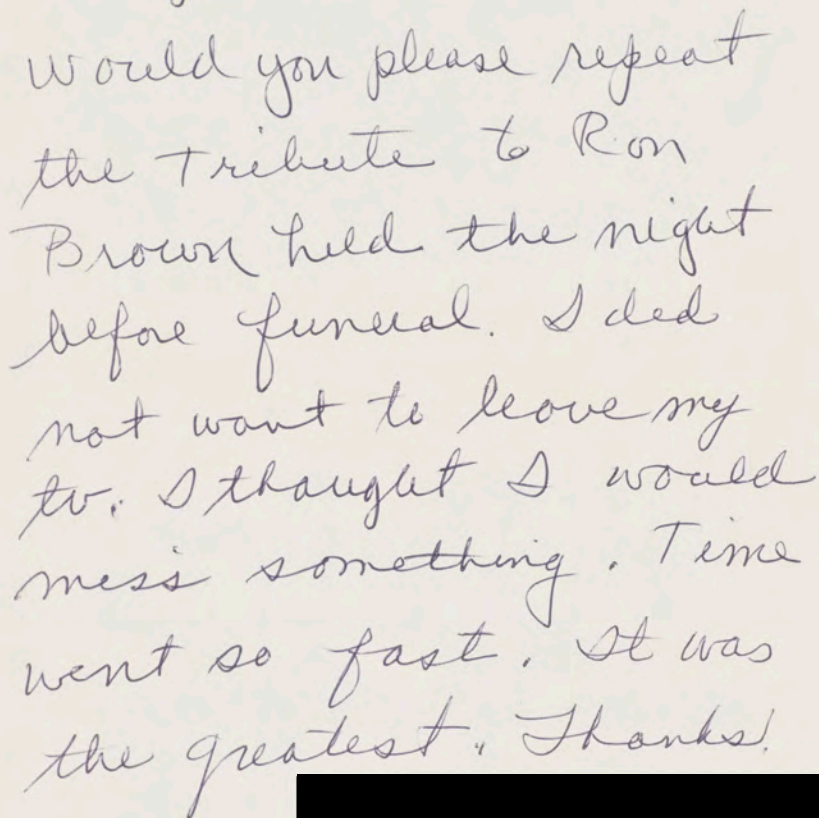 Would you please repeat
the Tribute to Ron
Brown held the night
before funeral. I did
not want to leave my
tv. I thought I would
miss something. Time
went so fast. It was
the greatest. Thanks!